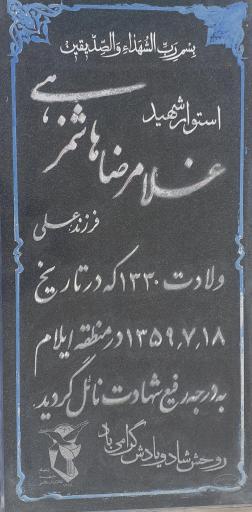 بسم رب الشهداء والصدیقین
استوار شهید
غلامرضا هاشمزهی
فرزند علی
ولادت ۱۳۳۰ که در تاریخ
۱۳۵۹٫۷٫۱۸ در منطقه ایلام
به درجه رفیع شهادت نائل گردید
روحش شاد و یادش گرامی باد